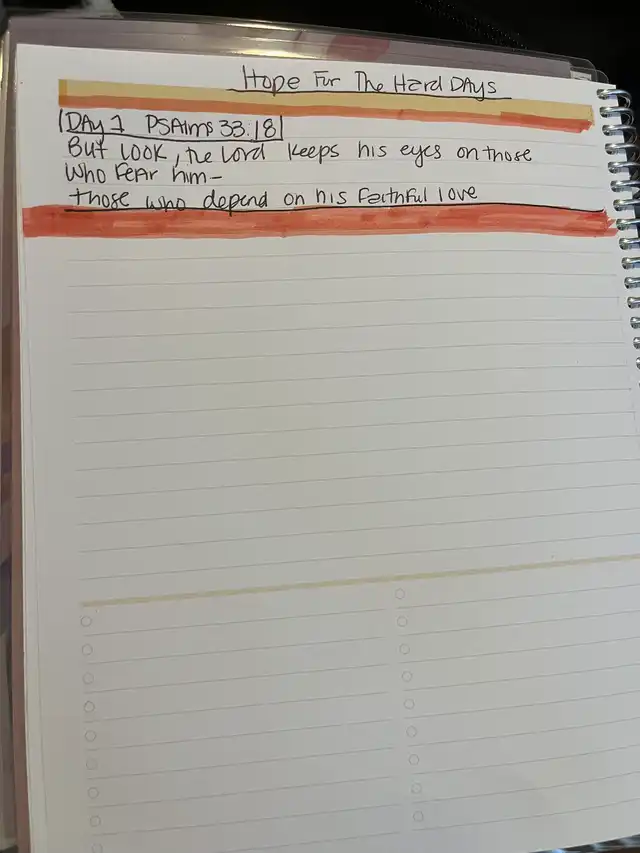 Hope For The Hard DAys
DAy 1 PSAlms 33:18
But look, the Lord keeps his eyes on those
who fear him—
those who depend on his faithful love